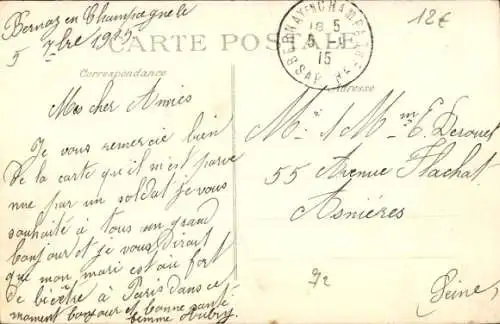 Bernay en Champagne le
5 7bre 1915
CARTE POSTALE
Correspondance
Adresse
BERNAY EN CHAMPAGNE
18 5
5 -9
15
SARTHE
12€
Mes cher Amies
Je vous remercie bien
de la carte qu'il m'est parve
nue par un soldat je vous
souhaité à tous un grand
bonjour et je vous dirait
que mon mari est au fort
de bicêtre à Paris dans ce
moment bonjour et bonne santé
femme Aubry
M. et Mme E. Derouel
55 Avenue Flachat
Asnières
Seine
92